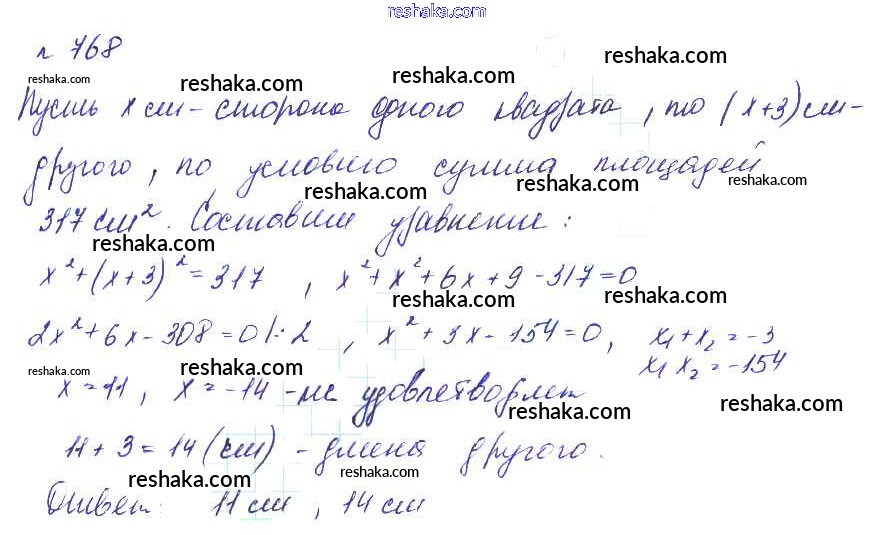 reshaka.com
№ 768
reshaka.com reshaka.com reshaka.com reshaka.com
Пусть x см - сторона одного квадрата, то (x+3) см -
reshaka.com
другого, по условию сумма площадей
reshaka.com reshaka.com reshaka.com
317 см². Составим уравнение:
reshaka.com reshaka.com
x² + (x+3)² = 317, x² + x² + 6x + 9 - 317 = 0
reshaka.com reshaka.com
2x² + 6x - 308 = 0 |: 2, x² + 3x - 154 = 0, x₁ + x₂ = -3
x₁ x₂ = -154
reshaka.com reshaka.com reshaka.com
x = 11, x = -14 - не удовлетворяет
reshaka.com reshaka.com
11 + 3 = 14 (см) - длина другого.
reshaka.com reshaka.com
Ответ: 11 см, 14 см
reshaka.com reshaka.com